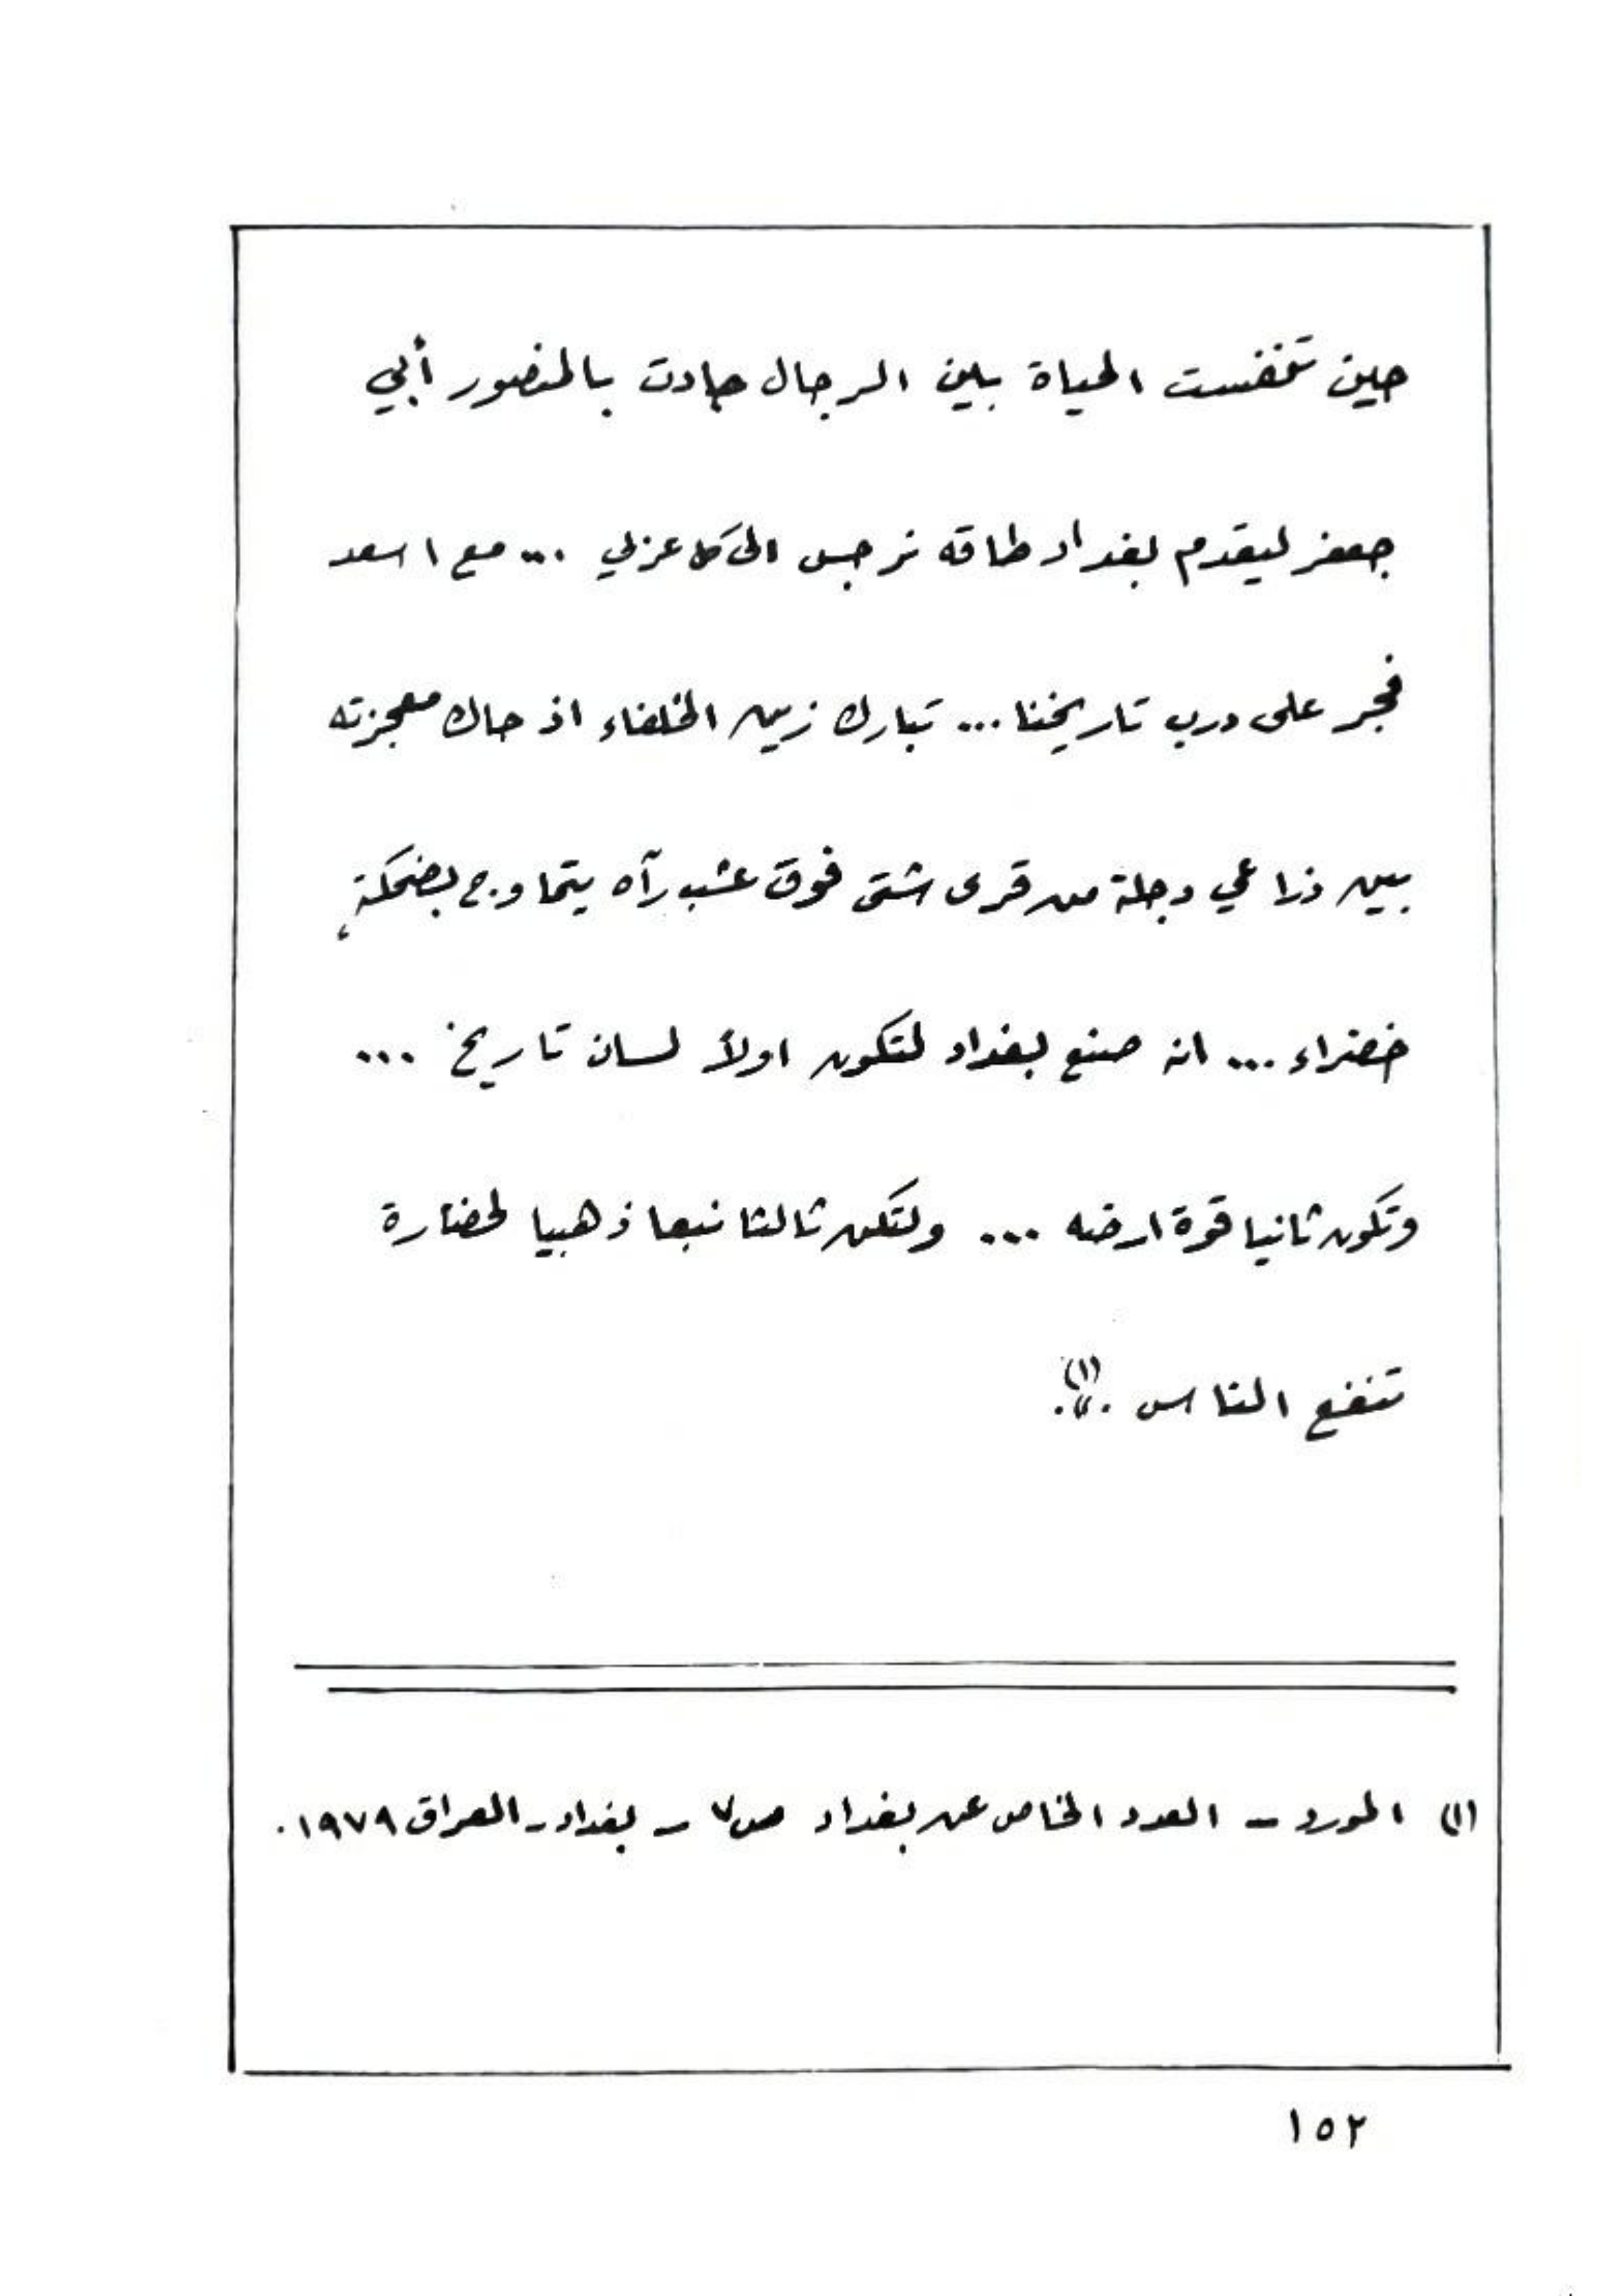 حين تنفست الحياة بين الرجال جادت بالمنصور أبي
جعفر ليقدم بغداد طاقه نرجس الى كل عزلي ... مع اسعد
فجر على درب تاريخنا ... تبارك زين الخلفاء اذ حاك معجزته
بين ذراعي دجلة من قرى شتى فوق عشب رآه يتماوج بضحكةٍ
خضراء ... انه صنع بغداد لتكون اولاً لسان تاريخ ...
وتكون ثانيا قوة ارضه ... ولتكن ثالثا نبعا ذهبيا لحضارة
تنفع الناس ..(١)
(١) المورد - العدد الخاص عن بغداد ص٧ - بغداد - العراق ١٩٧٩.
١٥٢